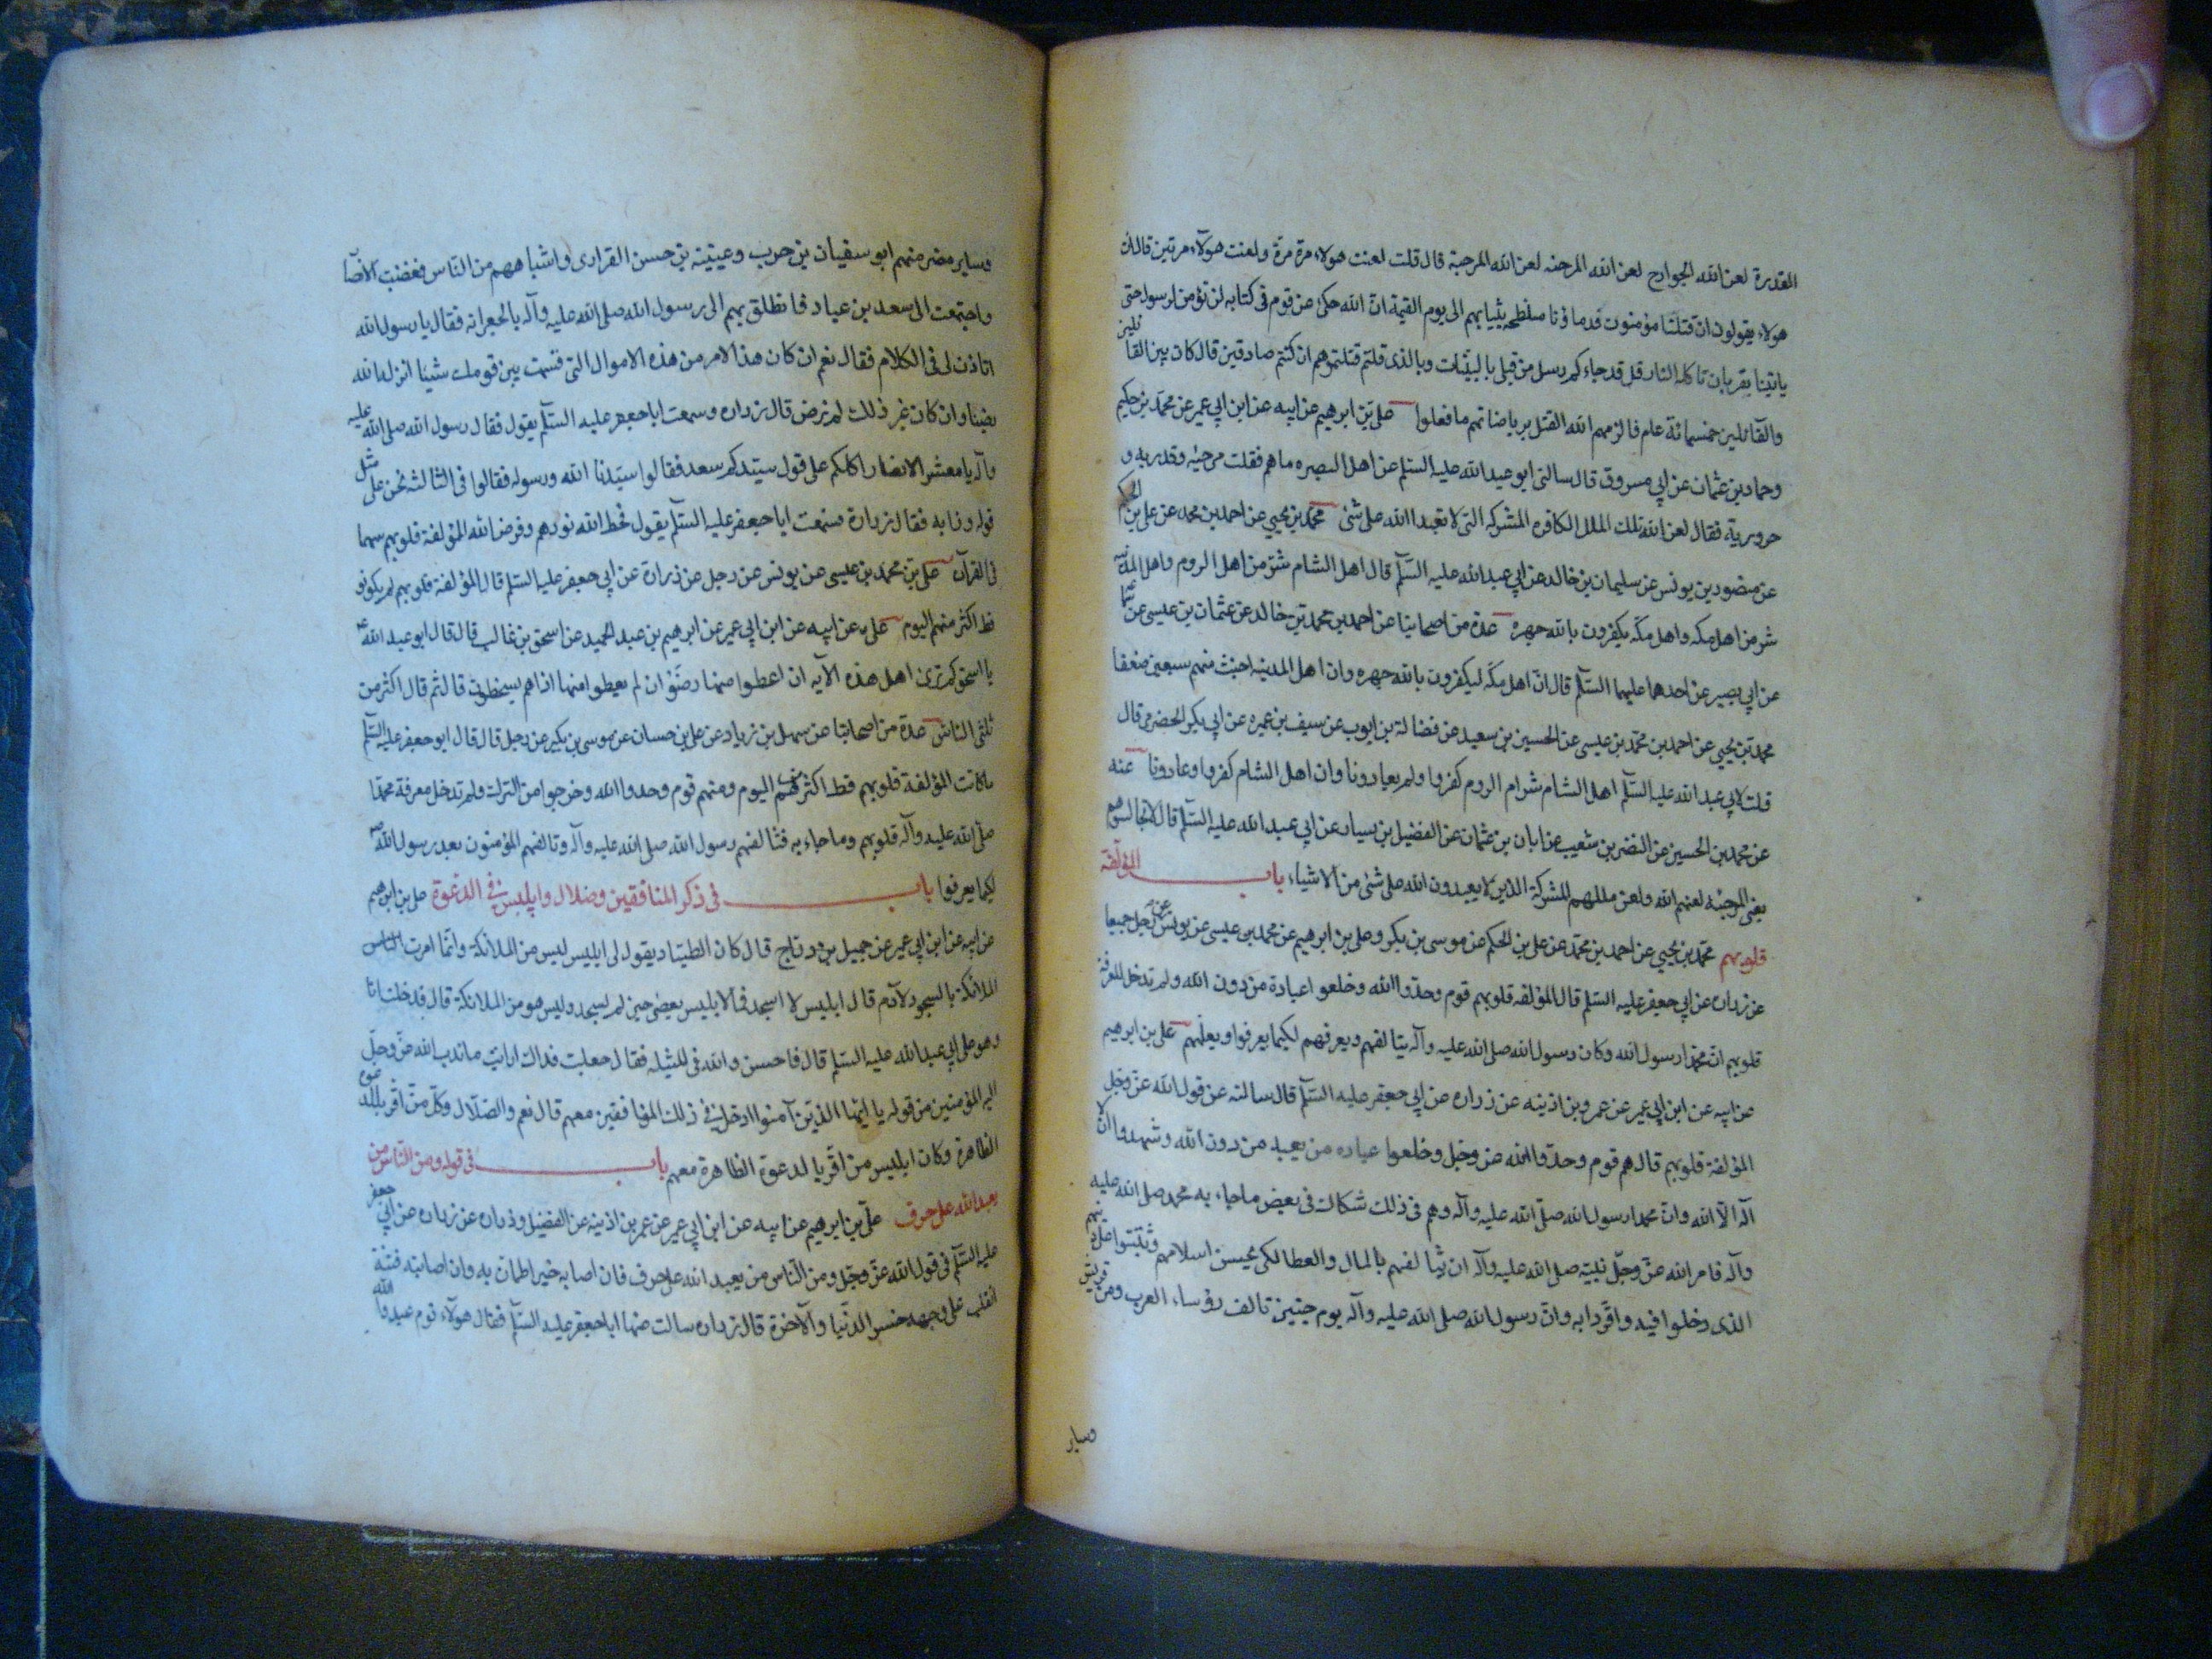 القدرة لعن الله الخوارج لعن الله المرجئه لعن الله المرجئة قال قلت لعنت هولاء مرة مرة ولعنت هولآء مرتين قال ان
هولاء يقولون ان قتلتنا مؤمنون فدماؤنا متلطخه بثيابهم الى يوم القيمة ان الله حكى عن قوم فى كتابه لن نؤمن لرسول حتى
ياتينا بقربان تاكله النار قل قد جاءكم رسل من قبلى بالبينات وبالذى قلتم فلم قتلتموهم ان كنتم صادقين قال كان بين القاتلين
والقآئلين خمسمائة عام فالزمهم الله القتل برضاهم ما فعلوا على بن ابرهيم عن ابيه عن ابن ابي عمير عن محمد بن حكيم
وحماد بن عثمان عن ابي مسروق قال سالنى ابو عبد الله عليه السلم عن اهل البصره ما هم فقلت مرجئه وقدريه و
حرورية فقال لعن الله تلك الملل الكافره المشركه التى لا تعبد الله على شئ محمد بن يحيي عن احمد بن محمد عن على بن الحكم
عن منصور بن يونس عن سليمان بن خالد عن ابي عبد الله عليه السلم قال اهل الشام شر من اهل الروم واهل المدينه
شر من اهل مكه واهل مكه يكفرون بالله جهره عدة من اصحابنا عن احمد بن محمد بن خالد عن عثمان بن عيسى عن سماعة
عن ابي بصير عن احدهما عليهما السلم قال ان اهل مكه ليكفرون بالله جهره وان اهل المدينه اخبث منهم سبعين ضعفا
محمد بن يحيي عن احمد بن محمد بن عيسى عن الحسين بن سعيد عن فضالة بن ايوب عن سيف بن عميره عن ابي بكر الحضرمى قال
قلت لابي عبد الله عليه السلم اهل الشام شر ام الروم كفروا ولم يعادونا وان اهل الشام كفروا وعادونا عنه
عن محمد بن الحسين عن النضر بن شعيب عن ابان بن عثمان عن الفضيل بن يسار عن ابي عبد الله عليه السلم قال لا تجالسوهم
يعنى المرجئه لعنهم الله ولعن مللهم المشركة الذين لا يعبدون الله على شئ من الاشياء باب المؤلفة
قلوبهم محمد بن يحيي عن احمد بن محمد عن على بن الحكم عن موسى بن بكر وعلى بن ابرهيم عن محمد بن عيسى عن يونس عن رجل جميعا
عن زراره عن ابي جعفر عليه السلم قال المؤلفة قلوبهم قوم وحدوا الله وخلعوا عبادة من دون الله ولم تدخل المعرفة
قلوبهم ان محمدا رسول الله وكان رسول الله صلى الله عليه وآله يتالفهم ويعرفهم لكيما يعرفوا ويعلمهم على بن ابرهيم
عن ابيه عن ابن ابي عمير عن عمر بن اذينه عن زراره عن ابي جعفر عليه السلم قال سالته عن قول الله عز وجل
المؤلفة قلوبهم قال هم قوم وحدوا الله عز وجل وخلعوا عباده من يعبد من دون الله وشهدوا ان لا
اله الا الله وان محمدا رسول الله صلى الله عليه وآله وهم فى ذلك شكاك فى بعض ما جاء به محمد صلى الله عليه
وآله فامر الله عز وجل نبيه صلى الله عليه وآله ان يتالفهم بالمال والعطا لكى يحسن اسلامهم ويثبتوا على دينهم
الذى دخلوا فيه واقروا به وان رسول الله صلى الله عليه وآله يوم حنين تالف رؤساء العرب ومن قريش
وساير
وساير مضر منهم ابو سفيان بن حرب وعيينه بن حسن الفزارى واشباههم من الناس فغضبت الانصار
واجتمعت الى سعد بن عباد فانطلق بهم الى رسول الله صلى الله عليه وآله بالجعرانه فقال يا رسول الله
اتاذن لى فى الكلام فقال نعم ان كان هذا الامر من هذه الاموال التى قسمت بين قومك شيئا انزله الله
رضينا وان كان غير ذلك لم نرض قال زراره وسمعت ابا جعفر عليه السلم يقول فقال رسول الله صلى الله عليه
وآله يا معشر الانصار اكلكم على قول سيدكم سعد فقالوا سيدنا الله ورسوله فقالوا فى الثالثه نحن على مثل
قوله ورايه فقال زرارة فسمعت ابا جعفر عليه السلم يقول فحط الله نورهم وفرض الله المؤلفة قلوبهم سهما
فى القرآن على بن محمد بن عيسى عن يونس عن رجل عن زرارة عن ابي جعفر عليه السلم قال المؤلفة قلوبهم لم يكونوا
قط اكثر منهم اليوم على عن ابيه عن ابن ابي عمير عن ابرهيم بن عبد الحميد عن اسحق بن غالب قال قال ابو عبد الله ع
يا اسحق كم ترى اهل هذه الآيه ان اعطوا منها رضوا وان لم يعطوا منها اذا هم يسخطون قال ثم قال اكثر من
ثلثى الناس عدة من اصحابنا عن سهل بن زياد عن على بن حسان عن موسى بن بكير عن رجل قال قال ابو جعفر عليه السلم
ما كانت المؤلفة قلوبهم قط اكثر منهم اليوم ومنهم قوم وحدوا الله وخرجوا من الشرك ولم تدخل معرفة محمد
صلى الله عليه وآله قلوبهم وما جاء به فتالفهم رسول الله صلى الله عليه وآله وتالفهم المؤمنون بعد رسول الله ص
لكيما يعرفوا باب فى ذكر المنافقين وضلال وابليس فى الدعوة على بن ابرهيم
عن ابيه عن ابن ابي عمير عن جميل بن دراج قال كان الطيار يقول لى ابليس ليس من الملائكة وانما امرت
الملائكة بالسجود لآدم قال ابليس لا اسجد فما لابليس يعصى حين لم يسجد وليس هو من الملائكة قال فدخلت انا
وهو على ابي عبد الله عليه السلم قال فاحسن والله فى المسئله فقال جعلت فداك ارايت ما ندب الله عز وجل
اليه المؤمنين من قوله يا ايها الذين آمنوا ادخل فى ذلك المنافقين معهم قال نعم والضلال وكل من اقر بالدعوة
الظاهرة وكان ابليس ممن اقر بالدعوة الظاهرة معهم باب فى قوله ومن الناس من
يعبد الله على حرف على بن ابرهيم عن ابيه عن ابن ابي عمير عن عمر بن اذينه عن الفضيل وزراره عن ابي جعفر
عليه السلم فى قول الله عز وجل ومن الناس من يعبد الله على حرف فان اصابه خير اطمان به وان اصابته فتنة
انقلب على وجهه خسر الدنيا والآخرة قال زراره سالت عنها ابا جعفر عليه السلم فقال هولآء قوم عبدوا الله